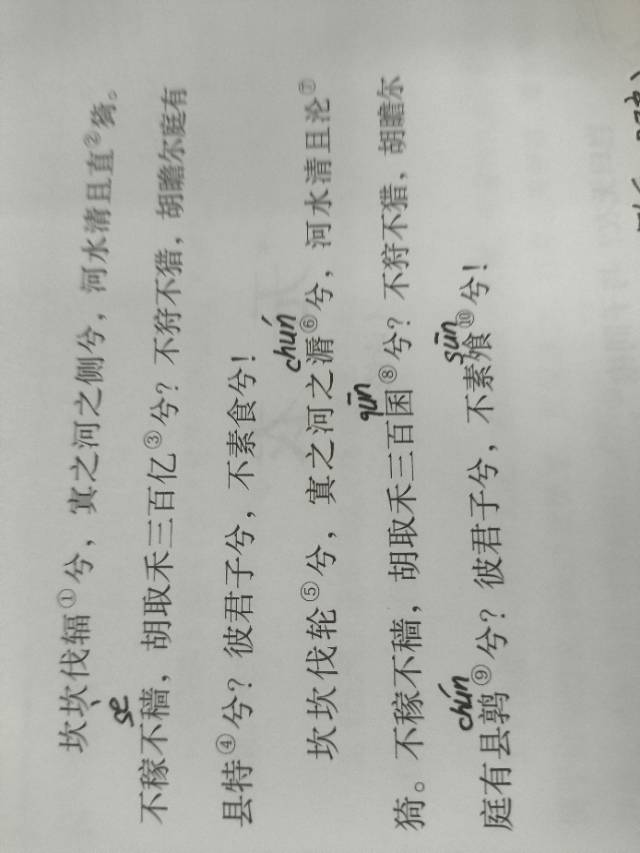 坎坎伐辐①兮，寘之河之侧兮，河水清且直②猗。
sè
不稼不穑，胡取禾三百亿③兮？不狩不猎，胡瞻尔庭有
县特④兮？彼君子兮，不素食兮！
chún
坎坎伐轮⑤兮，寘之河之漘⑥兮，河水清且沦⑦
qūn
猗。不稼不穑，胡取禾三百囷⑧兮？不狩不猎，胡瞻尔
chún sūn
庭有县鹑⑨兮？彼君子兮，不素飧⑩兮！